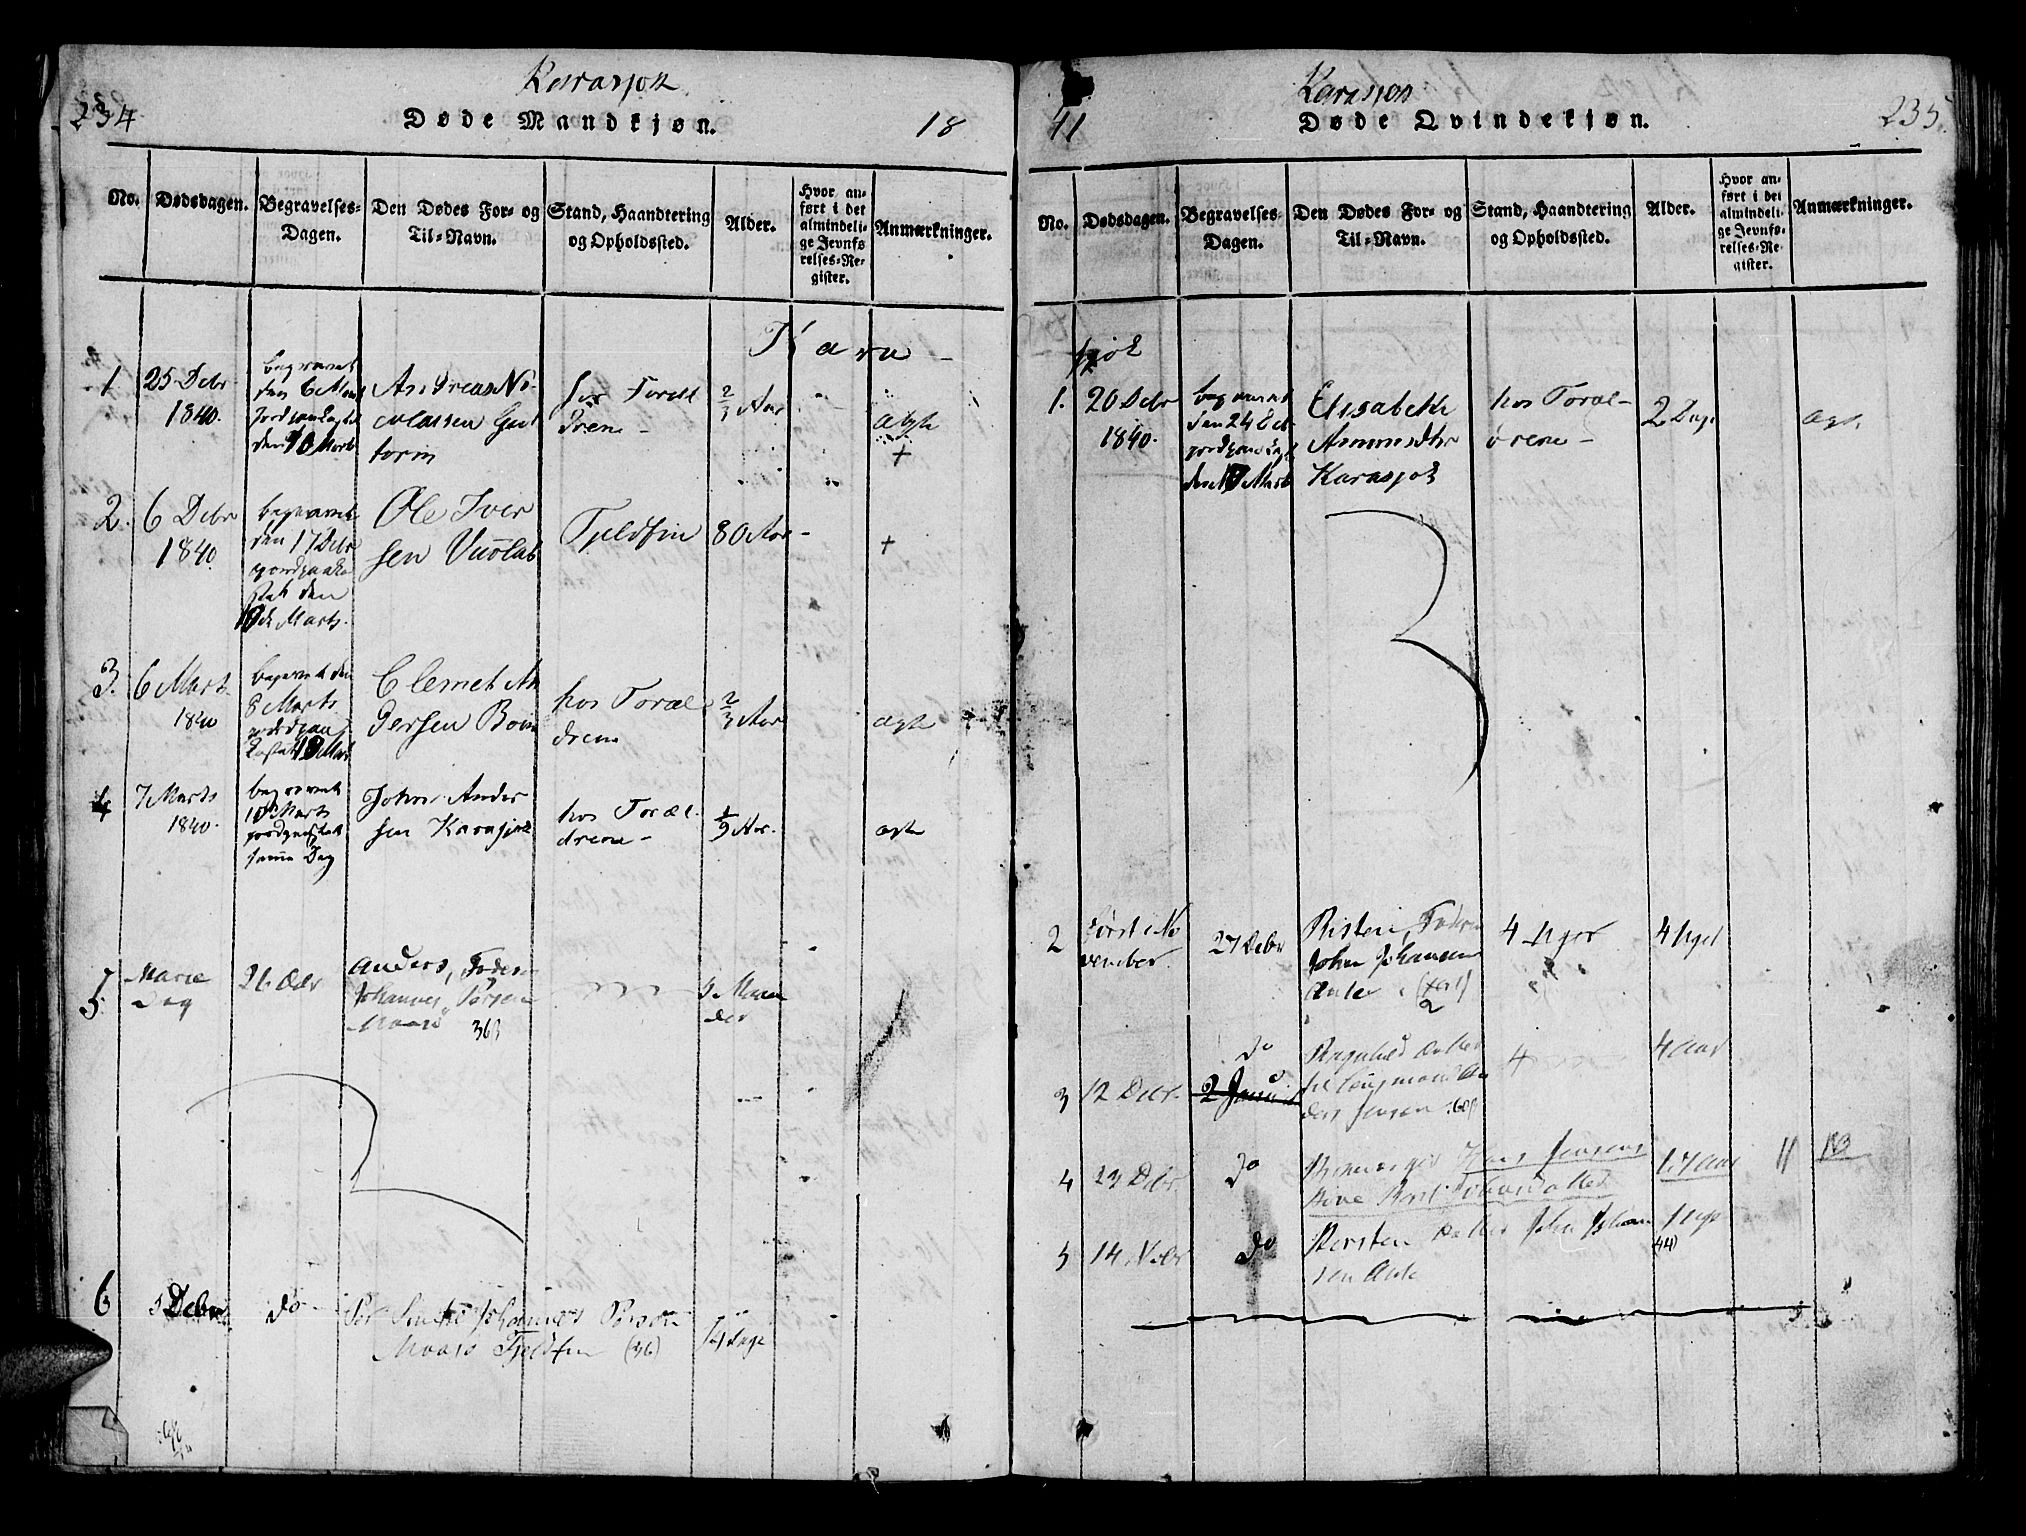 Karasjok
234
Døde Mandkjøn.
18
No.
Dødsdagen.
Begravelses-
Dagen.
Den Dødes For- og
Til-Navn.
Stand, Haandtering
og Opholdssted.
Alder.
Hvor an-
ført i det
almindeli-
ge Jevnfø
relses-Re-
gister.
Anmærkninger.
Kara-
1
25 Debr
1840.
begravet
den 6 Mart
jordpaakastet
den 10 Marts
Andreas Ni-
colaisen Gut
torm
hos Foræl
drene-
2/3 Aar
ægte
+
2.
6 Debr
1840
begravet
den 17 Debr
jordpaaka
stet den
10de Marts.
Ole Iver
sen Vuolab
Fjeldfin
80 Aar-
+
3.
6 Marts
1840
begravet den
8 Marts
jordpaa
kastet 10 Mart
Clemet An
dersen Boine
hos Foræl
drene
2/3 Aar
ægte
4
7 Marts
1840.
begravet
10de Marts
samme Dag
John Ander
sen Karasjok
hos Foræl-
drene-
1/9 Aar.
ægte
5.
Marie
Dag
26 Debr
Anders, Fader
Johannes Persen
36
9 Maane
der
6
5 Debr.
do
Per Johannes Persen
Fjeldfin (36)
14 Dage
41
Karasjok
Døde Qvindekjøn.
235.
No.
Dødsdagen.
Begravelses-
Dagen.
Den Dødes For- og
Til-Navn.
Stand, Haandtering
og Opholdssted.
Alder.
Hvor an-
ført i det
almindeli-
ge Jevnfø-
relses-Re-
gister.
Anmærkninger.
sjok
1.
20 Debr
1840.
begravet
den 24 Deb
jordpaakast
den 10 Marts
Elisabeth
Ammundsdtr
Karasjok
hos Foræl-
drene-
2 Dage
ægte
2
Først i No
vember
27 Debr
Risten, Fader
John Johansen
4 Uger
4 Uger
3
12 Debr.
do
2 Januar
Ragnhild Datter
til Laugmand An
ders Jensen
4
4 Aar
4
23 Debr.
do
Hans Jensens
5
14 Nvbr
do
Kirsten Datter John Johan
sen
1 Uge
(44)